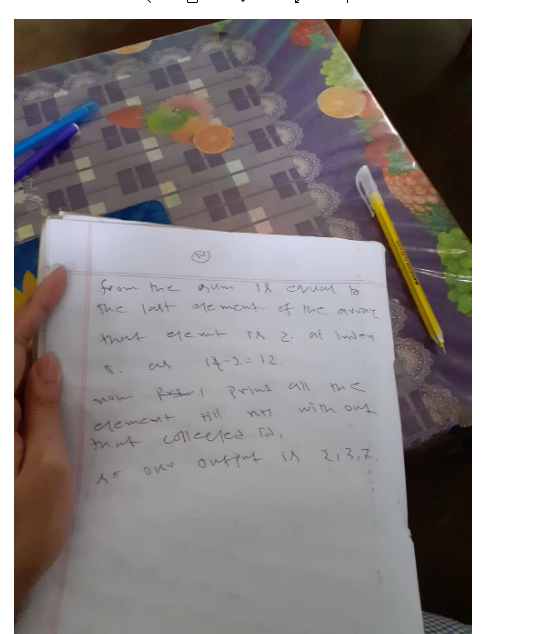 from the sum is equal to
the last element of the array
that elemt is 2. at index
8. as 14-2=12.
now print all the
element till n-1 with out
that collected id,
so our output is 2,3,7.